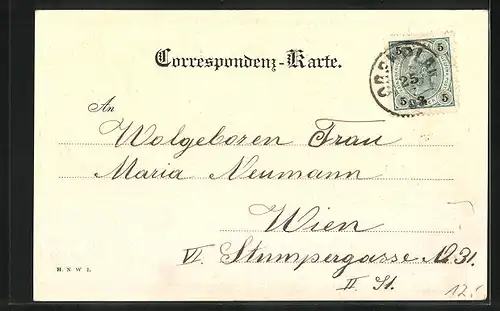 Correspondenz-Karte.
5 5
25
5 5
An
Wolgeboren Frau
Maria Neumann
Wien
VI. Stumpergasse No 31.
II St.
H. N. W I.
12.-